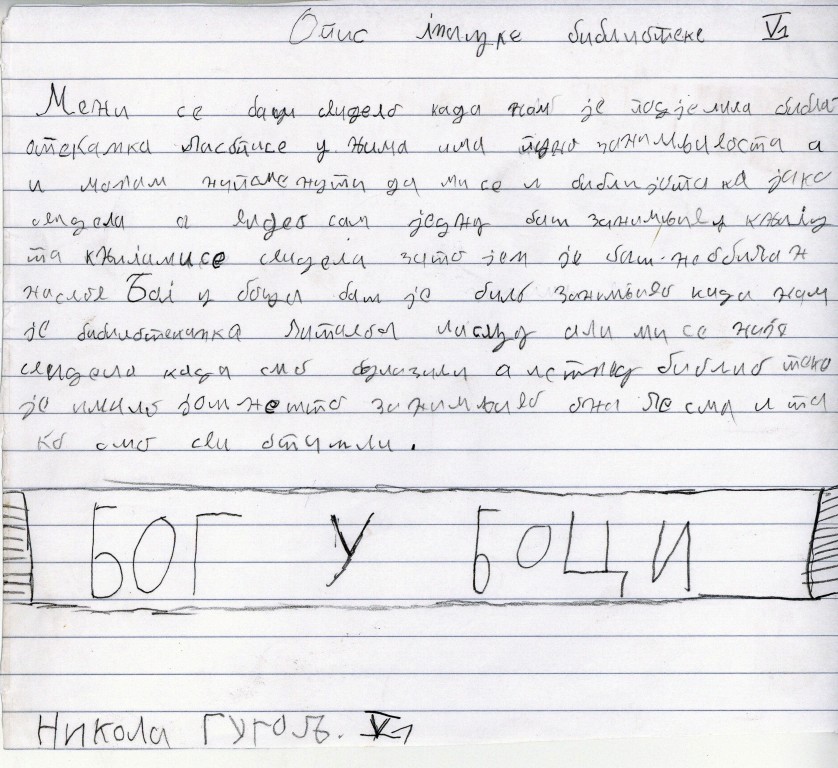 Опис гпалуке библиотеке V1
Мени се баш свидело када нам је поделила библи
отекамка Пасотисе у њима има пуно занимљивоста а
и морам напоменути да ми се и библиjотака јако
свидела а видео сам једну баш занимљиву књигу
та књигамисе свидела зато јем је баш необичан
наслов Бог у боци бам је било занимљиво када нам
је библиотекарка читалба али ми се није
свидело када смо одлазили а у библиотеке
је имало још нешто занимљиво она Песма и та
ко смо сви отишли.
БОГ У БОЦИ
НИКОЛА ГУГОЉ. V1